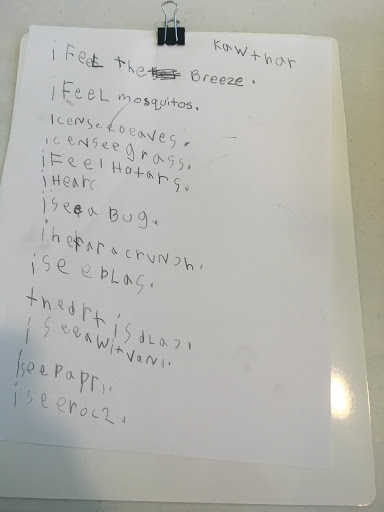 Kawthar
i FeeL the Breeze.
i FeeL mosquitos.
icensee Leaves.
icenseegrass.
iFeelHotars.
iHear
iseea BUg.
ihearacrunch.
iseebLas.
thedrt isbLac.
i seeawitvan.
iseepapr.
iseeroc2.